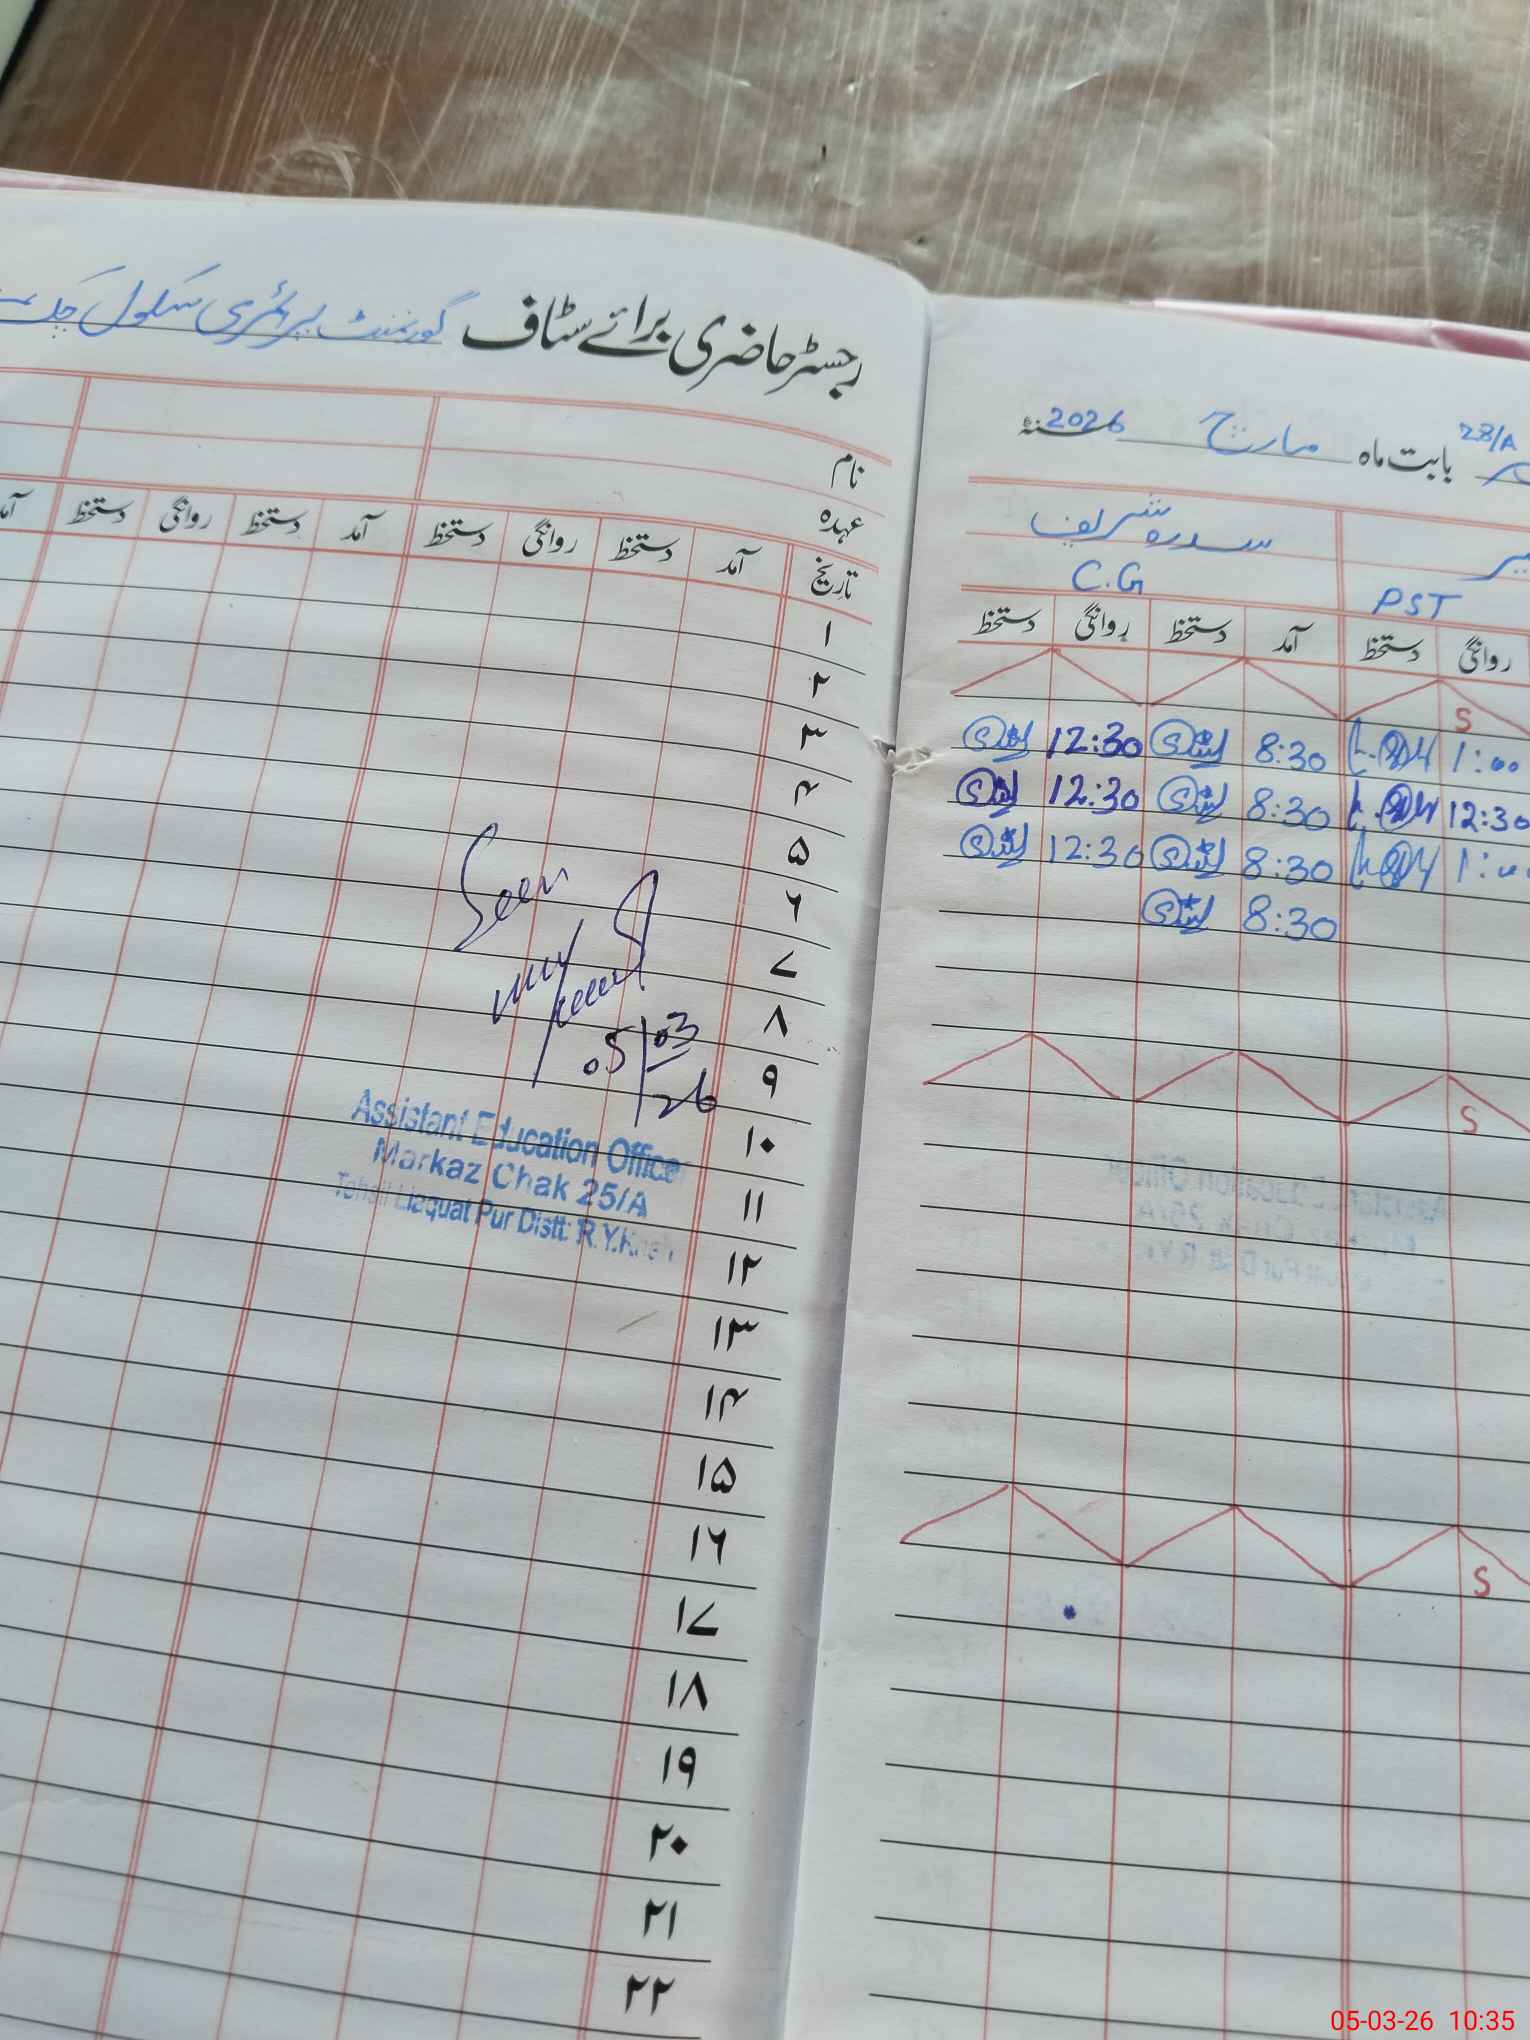 رجسٹر حاضری برائے سٹاف گورنمنٹ پرائمری سکول چک
نام
عہدہ
تاریخ آمد دستخط روانگی دستخط آمد دستخط روانگی دستخط
۱
۲
۳
۴
۵
۶
۷
۸
۹
۱۰
۱۱
۱۲
۱۳
۱۴
۱۵
۱۶
۱۷
۱۸
۱۹
۲۰
۲۱
۲۲
Seen
05/03
26
Assistant Education Officer
Markaz Chak 25/A
Tehsil Liaquat Pur Distt: R.Y.Khan
28/A بابت ماہ مارچ 2026
سدرہ شریف
PST C.G
روانگی دستخط آمد دستخط روانگی دستخط
S
1:00 8:30 12:30
12:30 8:30 12:30
8:30 12:30
8:30
S
S
05-03-26 10:35